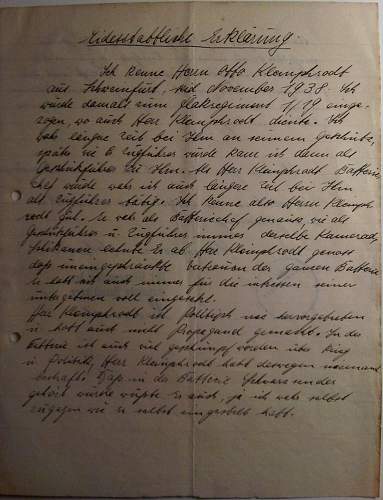 Eidesstattliche Erklärung.
Ich kenne Herrn Otto Klemphrodt
aus Schweinfurt, seit November 1938. Ich
wurde damals zum Flakregiment 1/19 einge-
zogen, wo auch Herr Klemphrodt diente. Ich
war längere Zeit bei Ihm an seinem Geschütz,
später wie er Zugführer wurde kam ich dann als
Geschützführer zu Ihm. Als Herr Klemphrodt Batterie-
chef wurde wahr ich auch längere Zeit bei Ihm
als Zugführer tätig. Ich kenne also Herrn Klemph-
rodt gut. Er wahr als Batteriechef genauso, wie als
Geschützführer u. Zugführer immer derselbe Kamerad,
Schikanen lehnte Er ab. Herr Klemphrodt genoss
das uneingeschränkte Vertrauen der ganzen Batterie
Er hatt sich auch immer für die Interessen seiner
untergebenen voll eingesetzt.
Herr Klemphrodt ist Politisch nie hervorgetreten
u. hatt auch nicht Propagand gemacht. In der
Batterie ist auch viel geschimpft worden über Krieg
u. Politik, Herr Klemphrodt hatt deswegen niemand
bestraft. Das in der Batterie Schwarzsender
gehört wurde wußte Er auch, ja ich wahr selbst
zugegen wie Er selbst eingestellt hatt.